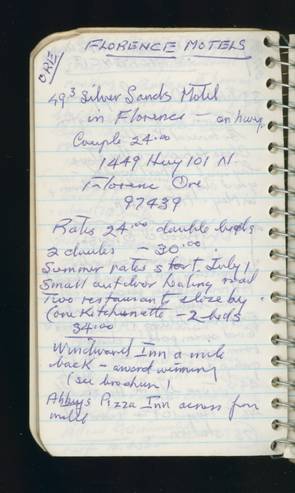 ORE
FLORENCE MOTELS
49³ Silver Sands Motel
in Florence - on hwy
Couple 24.00
1449 Hwy 101 N
Florenc Ore
97439
Rates 24.00 double beds
2 doubles - 30.00
Summer rates start July 1
Small outdoor heating pool
Two restaurants close by
(one Kitchenette - 2 beds
34.00
Windward Inn a mile
back - award winning
(see brochure)
Abby's Pizza Inn across from